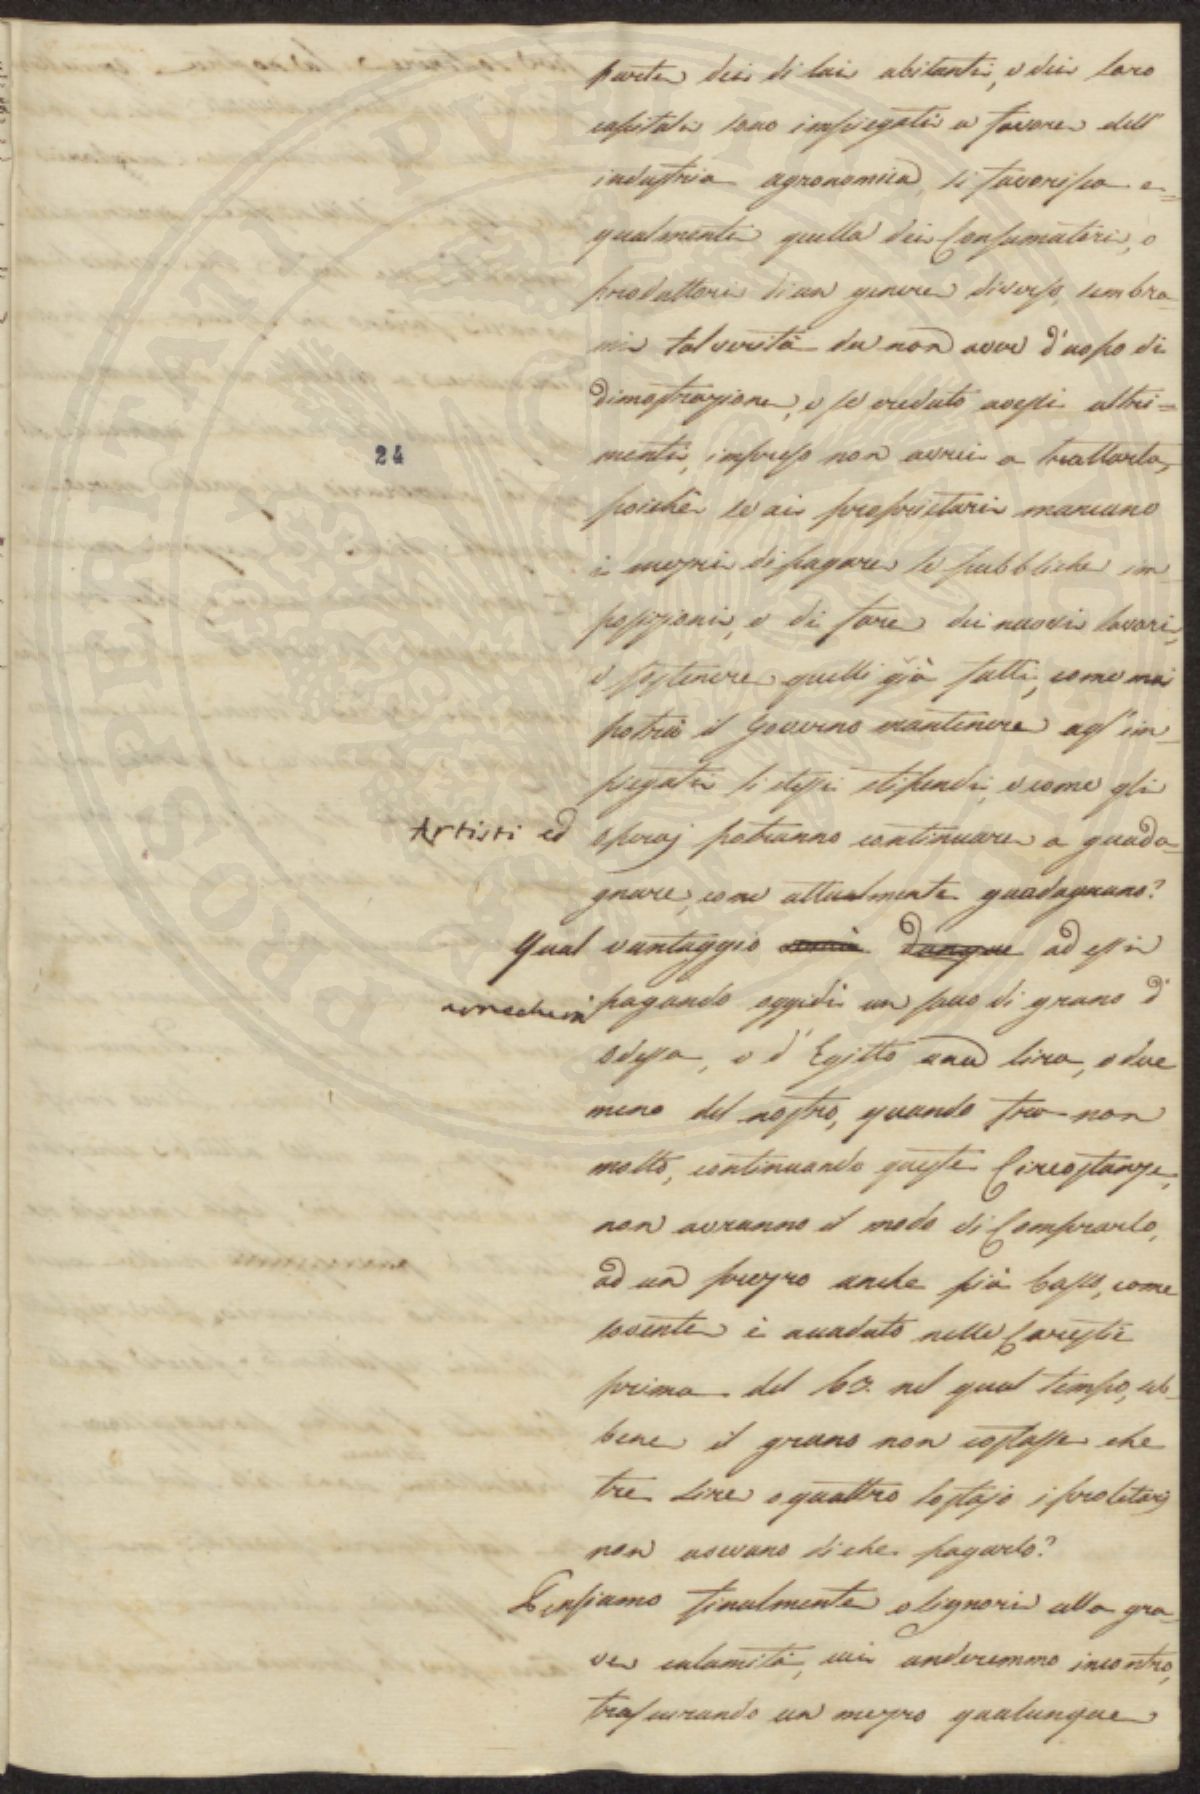 parte dei di lui abitanti, e dei loro
capitali sono impiegati a favore dell'
industria agronomica, si favorisca e=
gualmente quella dei Consumatori, o
produttori di un genere diverso, sembra-
mi tal verità da non aver d'uopo di
dimostrazione, e se creduto avessi altri=
menti, impreso non avrei a trattarla,
24
poichè se ai proprietari mancano
i mezzi di pagare le pubbliche im-
posizioni, e di fare dei nuovi lavori,
e sostenere quelli già fatti, come mai
potrà il Governo mantenere agl'im-
piegati li stessi stipendi, e come gli
Artisti ed operaj potranno continuare a guada-
gnare, come attualmente guadagnano?
Qual vantaggio dunque ad essi
arrecherà pagando oggidì un sacco di grano d'
Odessa, o d'Egitto una lira, o due
meno del nostro, quando fra non
molto, continuando queste Circostanze,
non avranno il modo di Comprarlo,
ad un prezzo anche più basso, come
sovente è accaduto nelle Carestie
prima del 63. nel qual tempo, seb-
bene il grano non costasse che
tre lire o quattro lo stajo i proletarj
non avevano di che pagarlo?
Pensiamo finalmente o Signori alla gra-
ve calamità, cui anderemmo incontro,
trascurando un mezzo qualunque
PROSPERITATI PVBLICAE